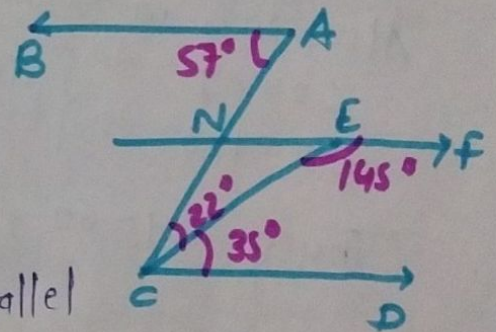 A
B
57°
N
E
F
145°
22°
35°
allel
C
D